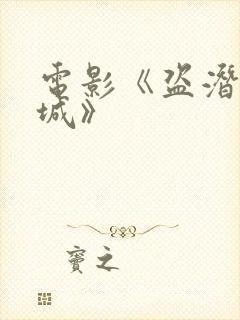 電影《盜潛
城》
竇之